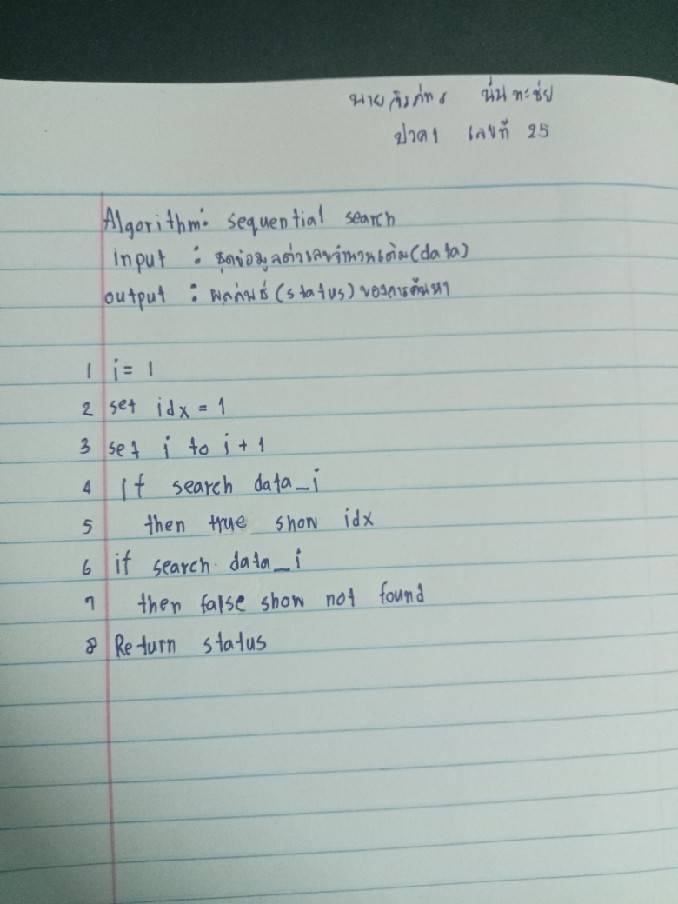 นาย
ปวค1 เลขที่ 25
Algorithm: sequential search
input : ชุดข้อมูลตัวเลขจำนวนเต็ม(data)
output : ผลลัพธ์ (status) ของการค้นหา
1 i = 1
2 set idx = 1
3 set i to i + 1
4 If search data_i
5 then true show idx
6 if search data_i
7 then false show not found
8 Return status